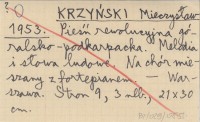 KRZYŃSKI Mieczysław
1953. Pieśń rewolucyjna gó-
ralsko-podkarpacka. Melodia
i słowa ludowe. Na chór mie-
szany z fortepianem. — War-
szawa. Stron 9, 3 nlb., 21×30
cm.